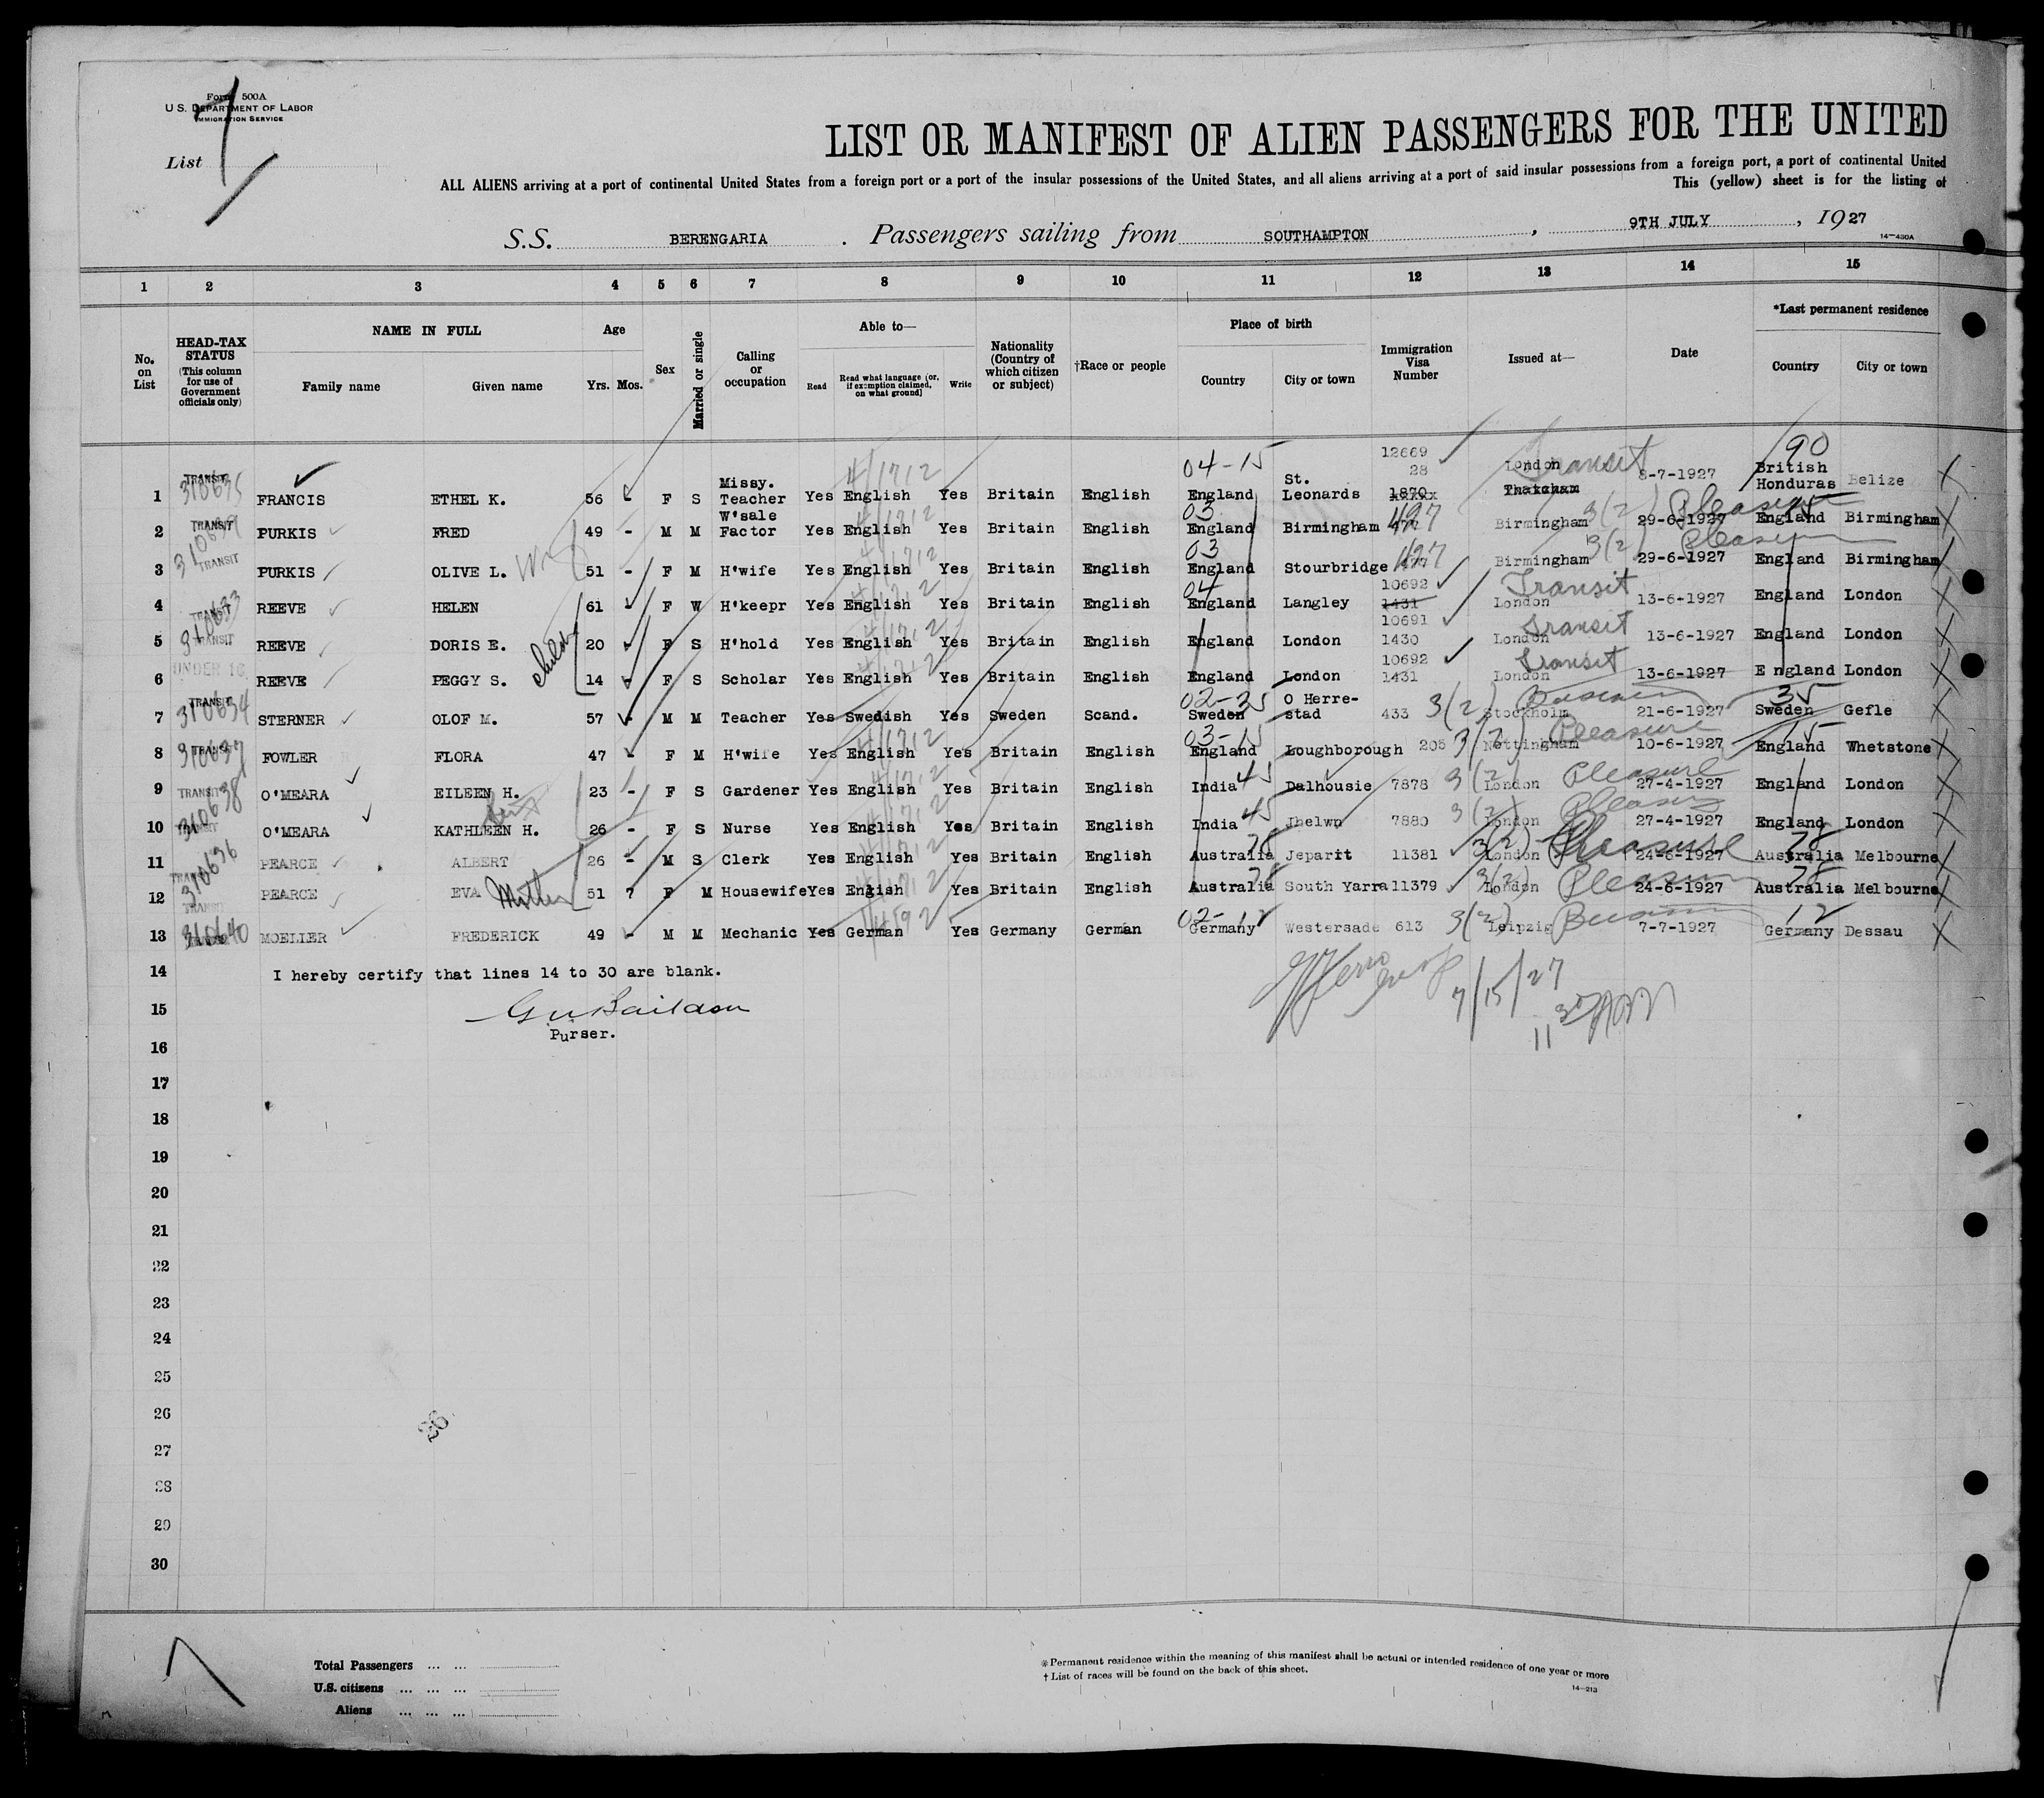 Form 500A
U.S. DEPARTMENT OF LABOR
IMMIGRATION SERVICE
List 7
LIST OR MANIFEST OF ALIEN PASSENGERS FOR THE UNITED
ALL ALIENS arriving at a port of continental United States from a foreign port or a port of the insular possessions of the United States, and all aliens arriving at a port of said insular possessions from a foreign port, a port of continental United
This (yellow) sheet is for the listing of
S.S. BERENGARIA . Passengers sailing from SOUTHAMPTON , 9TH JULY , 1927
14—430A
1 2 3 4 5 6 7 8 9 10 11 12 13 14 15
No. on List
HEAD-TAX STATUS (This column for use of Government officials only)
NAME IN FULL
Family name Given name
Age
Yrs. Mos.
Sex
Married or single
Calling or occupation
Able to—
Read
Read what language (or, if exemption claimed, on what ground)
Write
Nationality (Country of which citizen or subject)
†Race or people
Place of birth
Country City or town
Immigration Visa Number
Issued at—
Date
*Last permanent residence
Country City or town
04-15 12669 28 Transit 190
1 TRANSIT 310635 FRANCIS ETHEL K. 56 - F S Missy. Teacher Yes English Yes Britain English England St. Leonards 1870 London Thatcham 8-7-1927 British Honduras Belize
2 TRANSIT 310639 PURKIS FRED 49 - M M W'sale Factor Yes English Yes Britain English 03 England Birmingham 497 Birmingham 3(2) Pleasure 29-6-1927 15 England Birmingham
3 TRANSIT PURKIS OLIVE L. 51 - F M H'wife Yes English Yes Britain English 03 England Stourbridge Birmingham 3(2) Pleasure 29-6-1927 England Birmingham
4 TRANSIT 310633 REEVE HELEN 61 - F W H'keepr Yes English Yes Britain English 04 England Langley 10692 1431 London Transit 13-6-1927 England London
5 TRANSIT REEVE DORIS E. 20 - F S H'hold Yes English Yes Britain English England London 10691 1430 London Transit 13-6-1927 England London
6 UNDER 16 REEVE PEGGY S. 14 - F S Scholar Yes English Yes Britain English England London 10692 1431 London Transit 13-6-1927 England London
7 TRANSIT 310634 STERNER OLOF M. 57 - M M Teacher Yes Swedish Yes Sweden Scand. 02-35 Sweden O Herre-stad 433 3(2) Stockholm Business 21-6-1927 35 Sweden Gefle
8 TRANSIT 310637 FOWLER FLORA 47 - F M H'wife Yes English Yes Britain English 03-15 England Loughborough 205 3(2) Nottingham Pleasure 10-6-1927 15 England Whetstone
9 TRANSIT 310638 O'MEARA EILEEN H. 23 - F S Gardener Yes English Yes Britain English India 45 Dalhousie 7878 3(2) London Pleasure 27-4-1927 England London
10 TRANSIT O'MEARA KATHLEEN H. 26 - F S Nurse Yes English Yes Britain English India 45 Jhelwn 7880 3(2) London Pleasure 27-4-1927 England London
11 310636 PEARCE ALBERT 26 - M S Clerk Yes English Yes Britain English 78 Australia Jeparit 11381 3(2) London Pleasure 24-6-1927 78 Australia Melbourne
12 TRANSIT PEARCE EVA Mother 51 ? F M Housewife Yes Engish Yes Britain English 78 Australia South Yarra 11379 3(2) London Pleasure 24-6-1927 78 Australia Melbourne
13 310640 MOELLER FREDERICK 49 - M M Mechanic Yes German Yes Germany German 02-12 Germany Westersade 613 3(2) Leipzig Business 7-7-1927 12 Germany Dessau
14 I hereby certify that lines 14 to 30 are blank.
15
Purser.
7/15/27
16
17
18
19
20
21
22
23
24
25
26
27
28
29
30
Total Passengers ... ...
U.S. citizens ... ... ...
Aliens ... ... ...
*Permanent residence within the meaning of this manifest shall be actual or intended residence of one year or more
†List of races will be found on the back of this sheet.
14—213